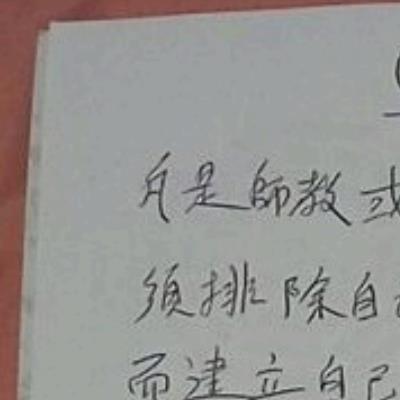 凡是師教或
須排除自
而建立自己